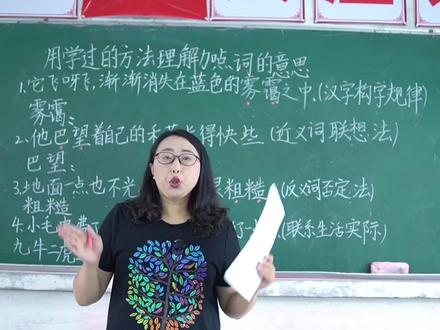 用学过的方法理解加点词的意思
1.它飞呀飞,渐渐消失在蓝色的雾霭之中.(汉字构字规律)
雾霭:
2.他巴望着自己的禾 得快些 (近义词联想法)
巴望:
3.地面一点也不光 粗糙(反义词否定法)
粗糙
4.小毛 了一 (联系生活实际)
九牛二虎